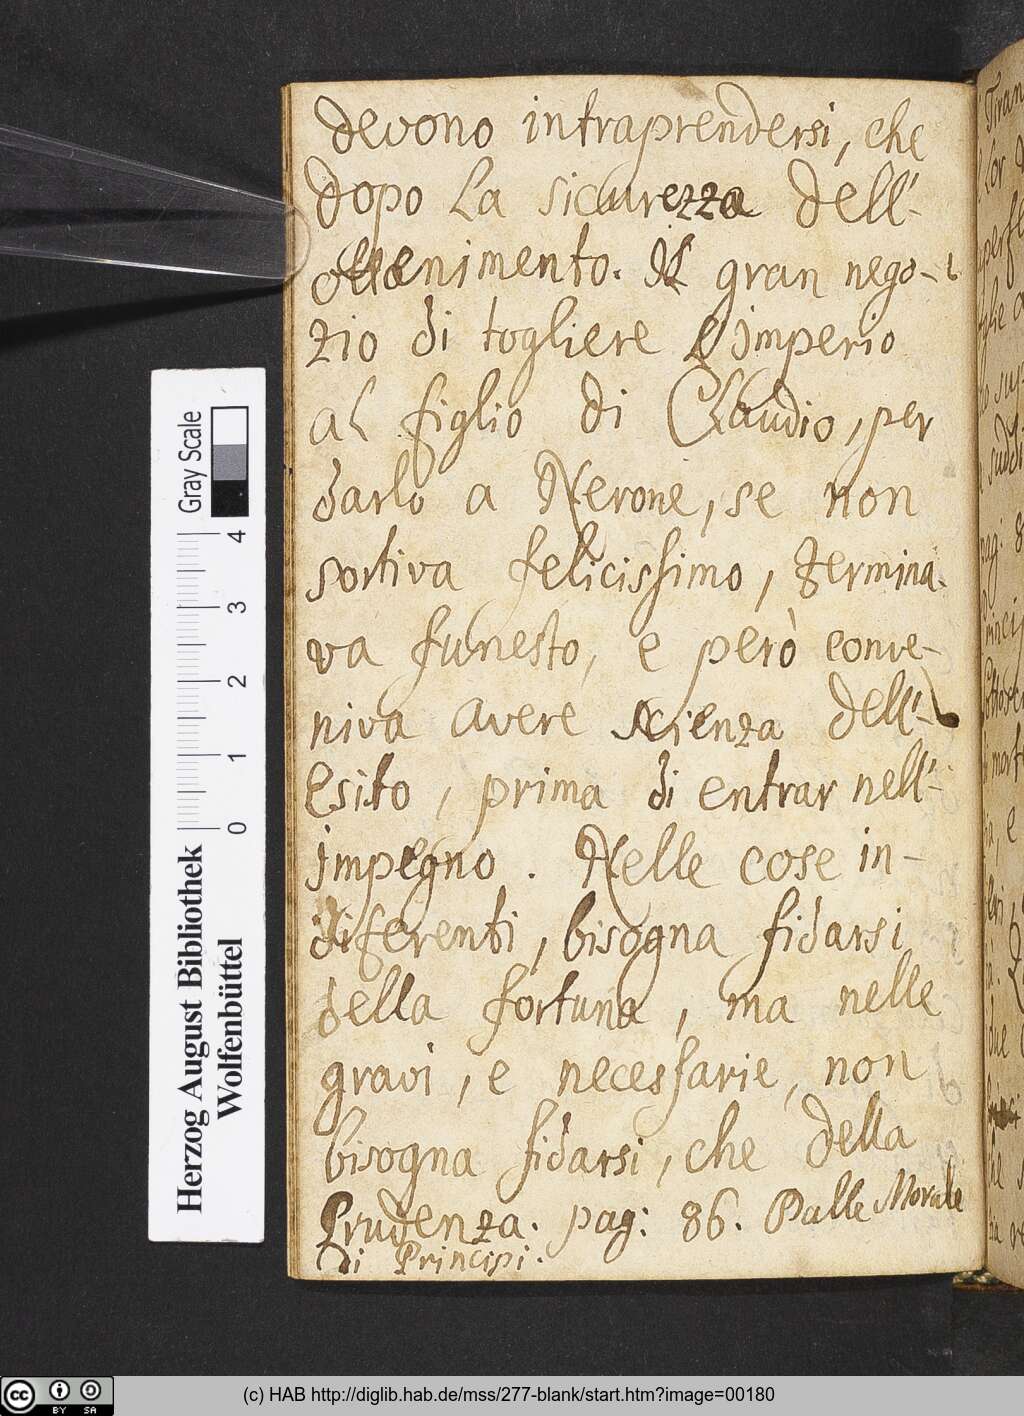 devono intraprendersi, che
dopo la sicurezza dell'-
ottenimento. Il gran nego-
zio di togliere l'imperio
al figlio di Claudio, per
darlo a Nerone, se non
sortiva felicissimo, termina-
va funesto, e però conve-
niva avere scienza dell'-
Esito, prima di entrar nell'-
impegno. Nelle cose in-
diferenti, bisogna fidarsi
della fortuna, ma nelle
gravi, e necessarie, non
bisogna fidarsi, che della
Prudenza. pag: 86. Dalle Morale
di Principi.
Gray Scale
0 1 2 3 4
Herzog August Bibliothek
Wolfenbüttel
cc BY SA
(c) HAB http://diglib.hab.de/mss/277-blank/start.htm?image=00180